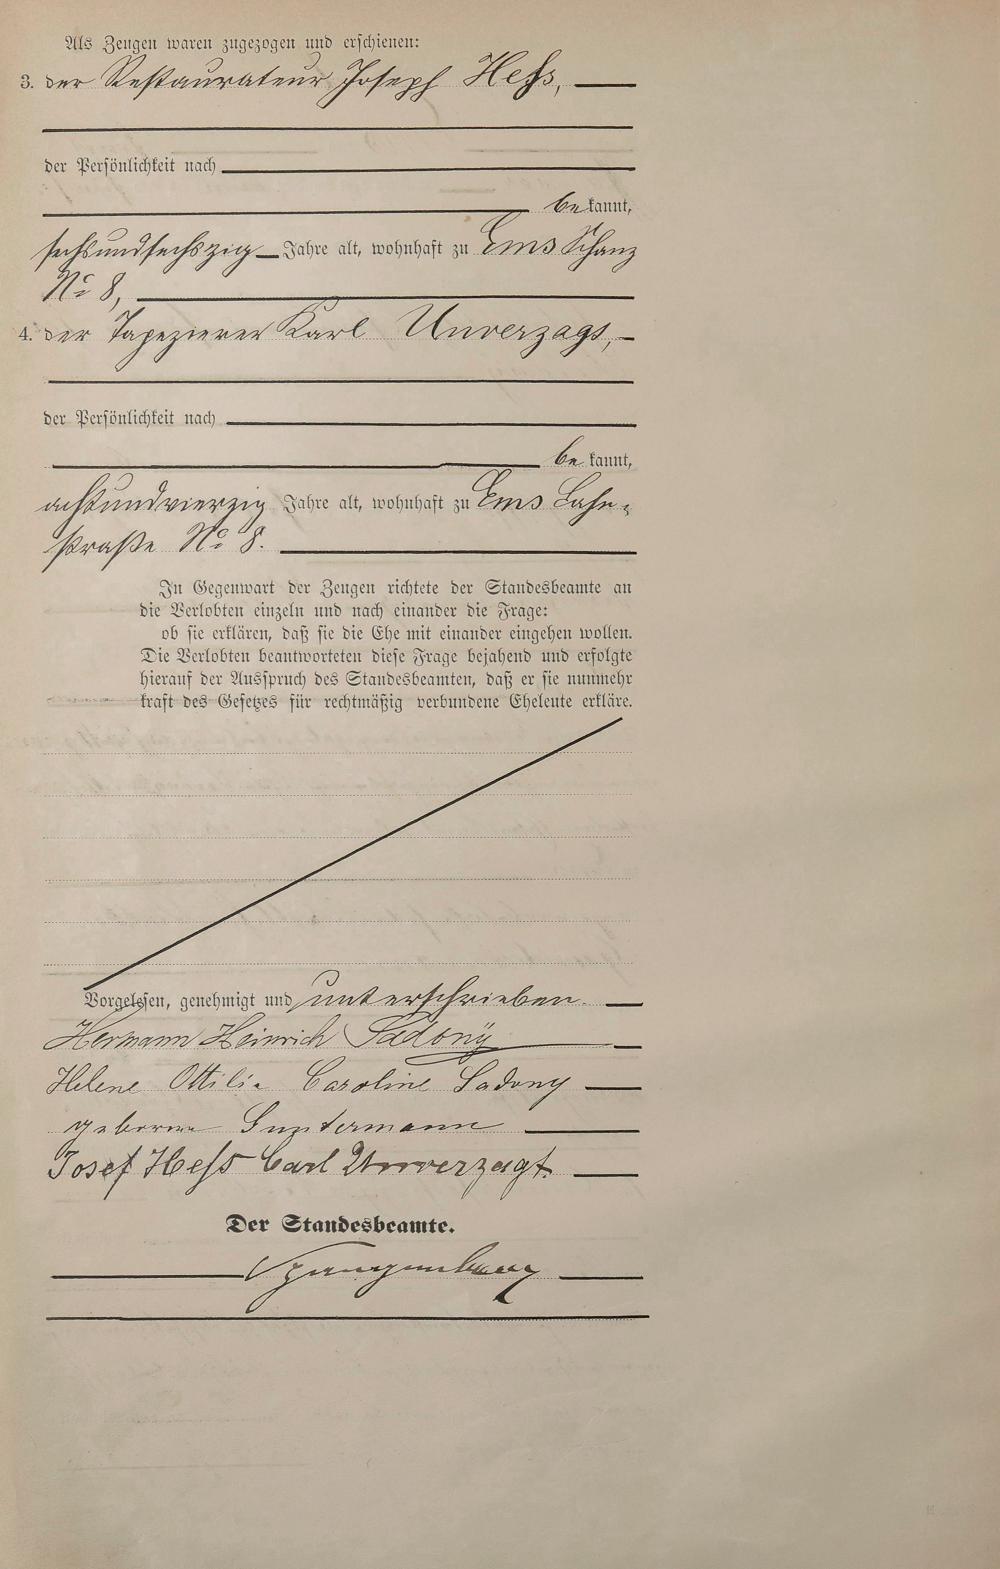 Als Zeugen waren zugezogen und erschienen:
3. der Restaurateur Joseph Heſs,
der Persönlichkeit nach
bekannt,
sechsundsechszig Jahre alt, wohnhaft zu Ems Schanz
No 8,
4. der Tapezierer Karl Unverzagt,
der Persönlichkeit nach
bekannt,
achtundvierzig Jahre alt, wohnhaft zu Ems Lahn-
straße No 8.
In Gegenwart der Zeugen richtete der Standesbeamte an
die Verlobten einzeln und nach einander die Frage:
ob sie erklären, daß sie die Ehe mit einander eingehen wollen.
Die Verlobten beantworteten diese Frage bejahend und erfolgte
hierauf der Ausspruch des Standesbeamten, daß er sie nunmehr
kraft des Gesetzes für rechtmäßig verbundene Eheleute erkläre.
Vorgelesen, genehmigt und unterschrieben.
Hermann Heinrich Sadony
Helene Ottilie Caroline Sadony
geborene Guntermann
Josef Heſs Carl Unverzagt
Der Standesbeamte.
Spangenberg